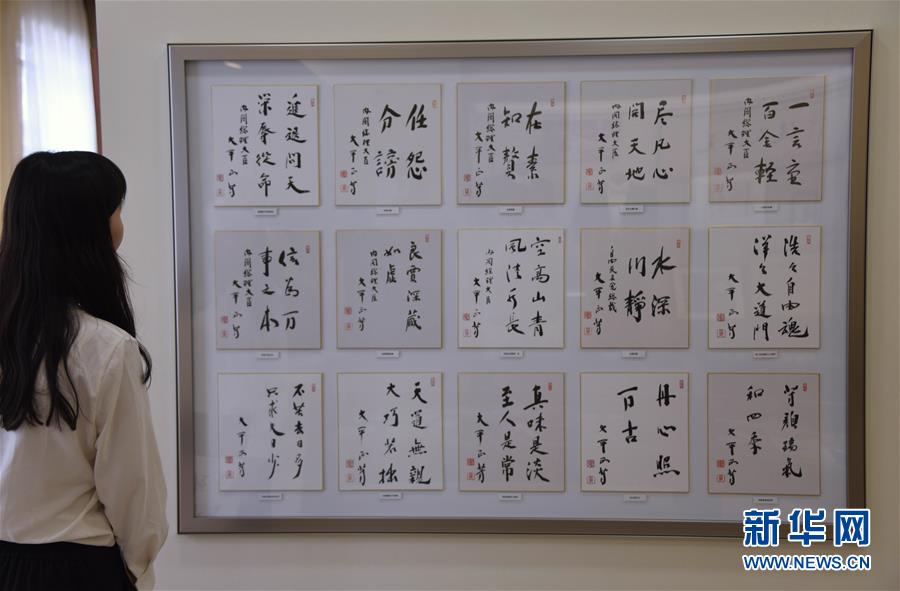 進退問天
榮辱從命
内閣総理大臣
大平正芳
任怨
分謗
内閣総理大臣
大平正芳
在素
知贅
内閣総理大臣
大平正芳
尽凡心
開天地
内閣総理大臣
大平正芳
一言重
百金軽
内閣総理大臣
大平正芳
信為万
事之本
内閣総理大臣
大平正芳
良賈深蔵
如虚
内閣総理大臣
大平正芳
空高山青
風清水長
内閣総理大臣
大平正芳
水深
川静
自由民主党総裁
大平正芳
浩々自由魂
洋々大道門
大平正芳
去日多
大平正芳
天道無親
大巧若拙
大平正芳
真味是淡
至人是常
大平正芳
丹心照
万古
大平正芳
瑞氣
和四季
大平正芳
新华网
WWW.NEWS.CN